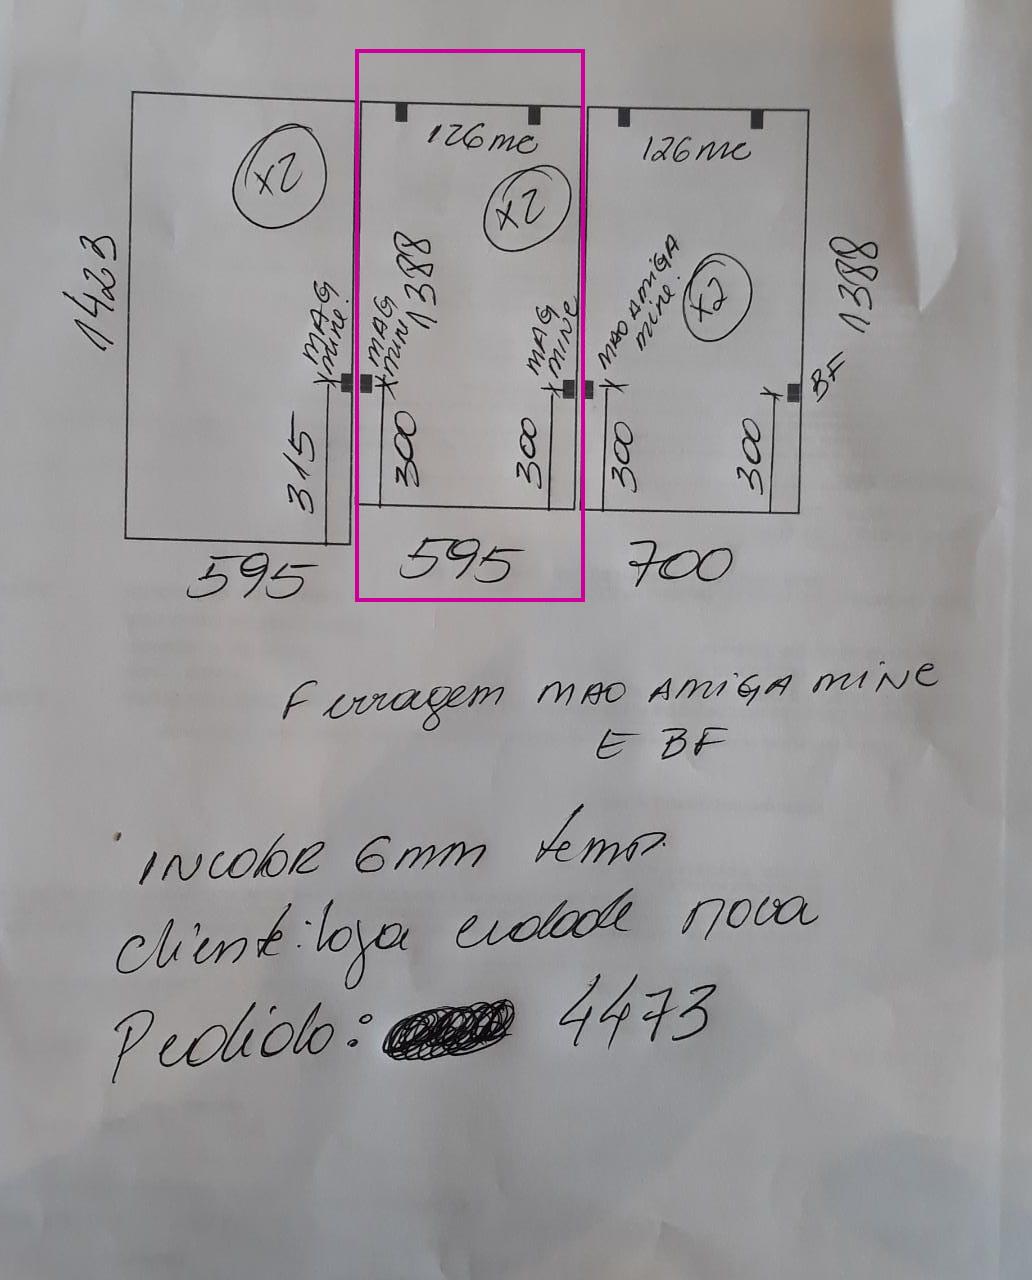 126mc
126mc
x2
x2
x2
1423
1388
1388
MAG
mine.
MAG
mini
MAG
MINE
MAO AMIGA
mine.
BF
315
300
300
300
300
595
595
700
Ferragem MAO AMIGA MINE
E BF
INCOLOR 6mm temp.
cliente: loja cidade nova
Pedido: 4473